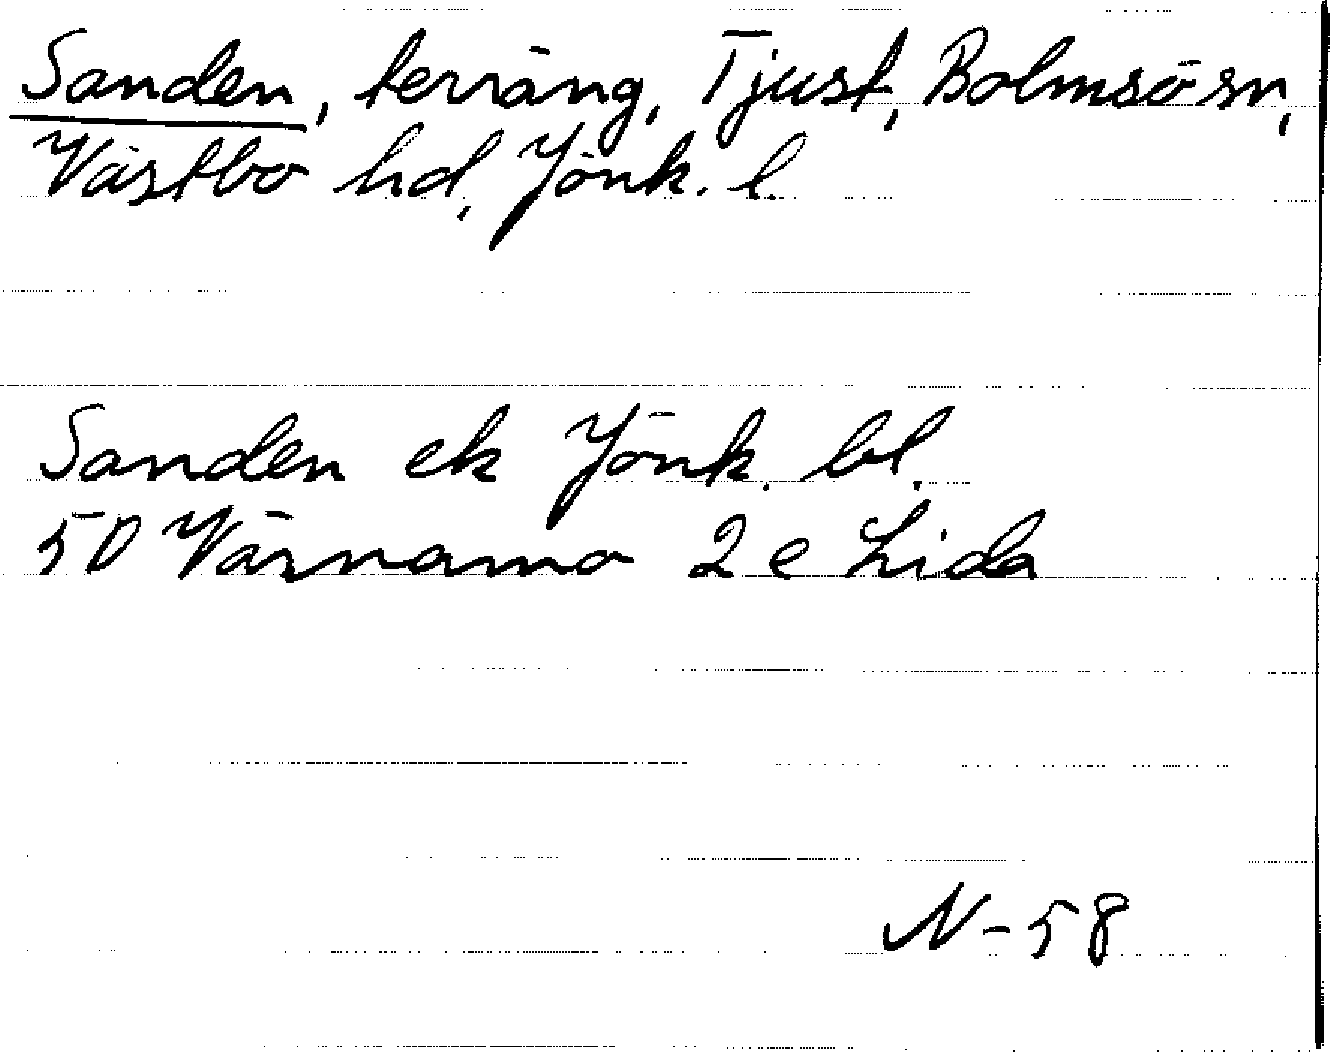 Sanden, terräng, Tjust, Bolmsö sn,
Västbo hd, Jönk. l.
Sanden ek Jönk. bl.
5D Värnamo 2 e Lida
N-58